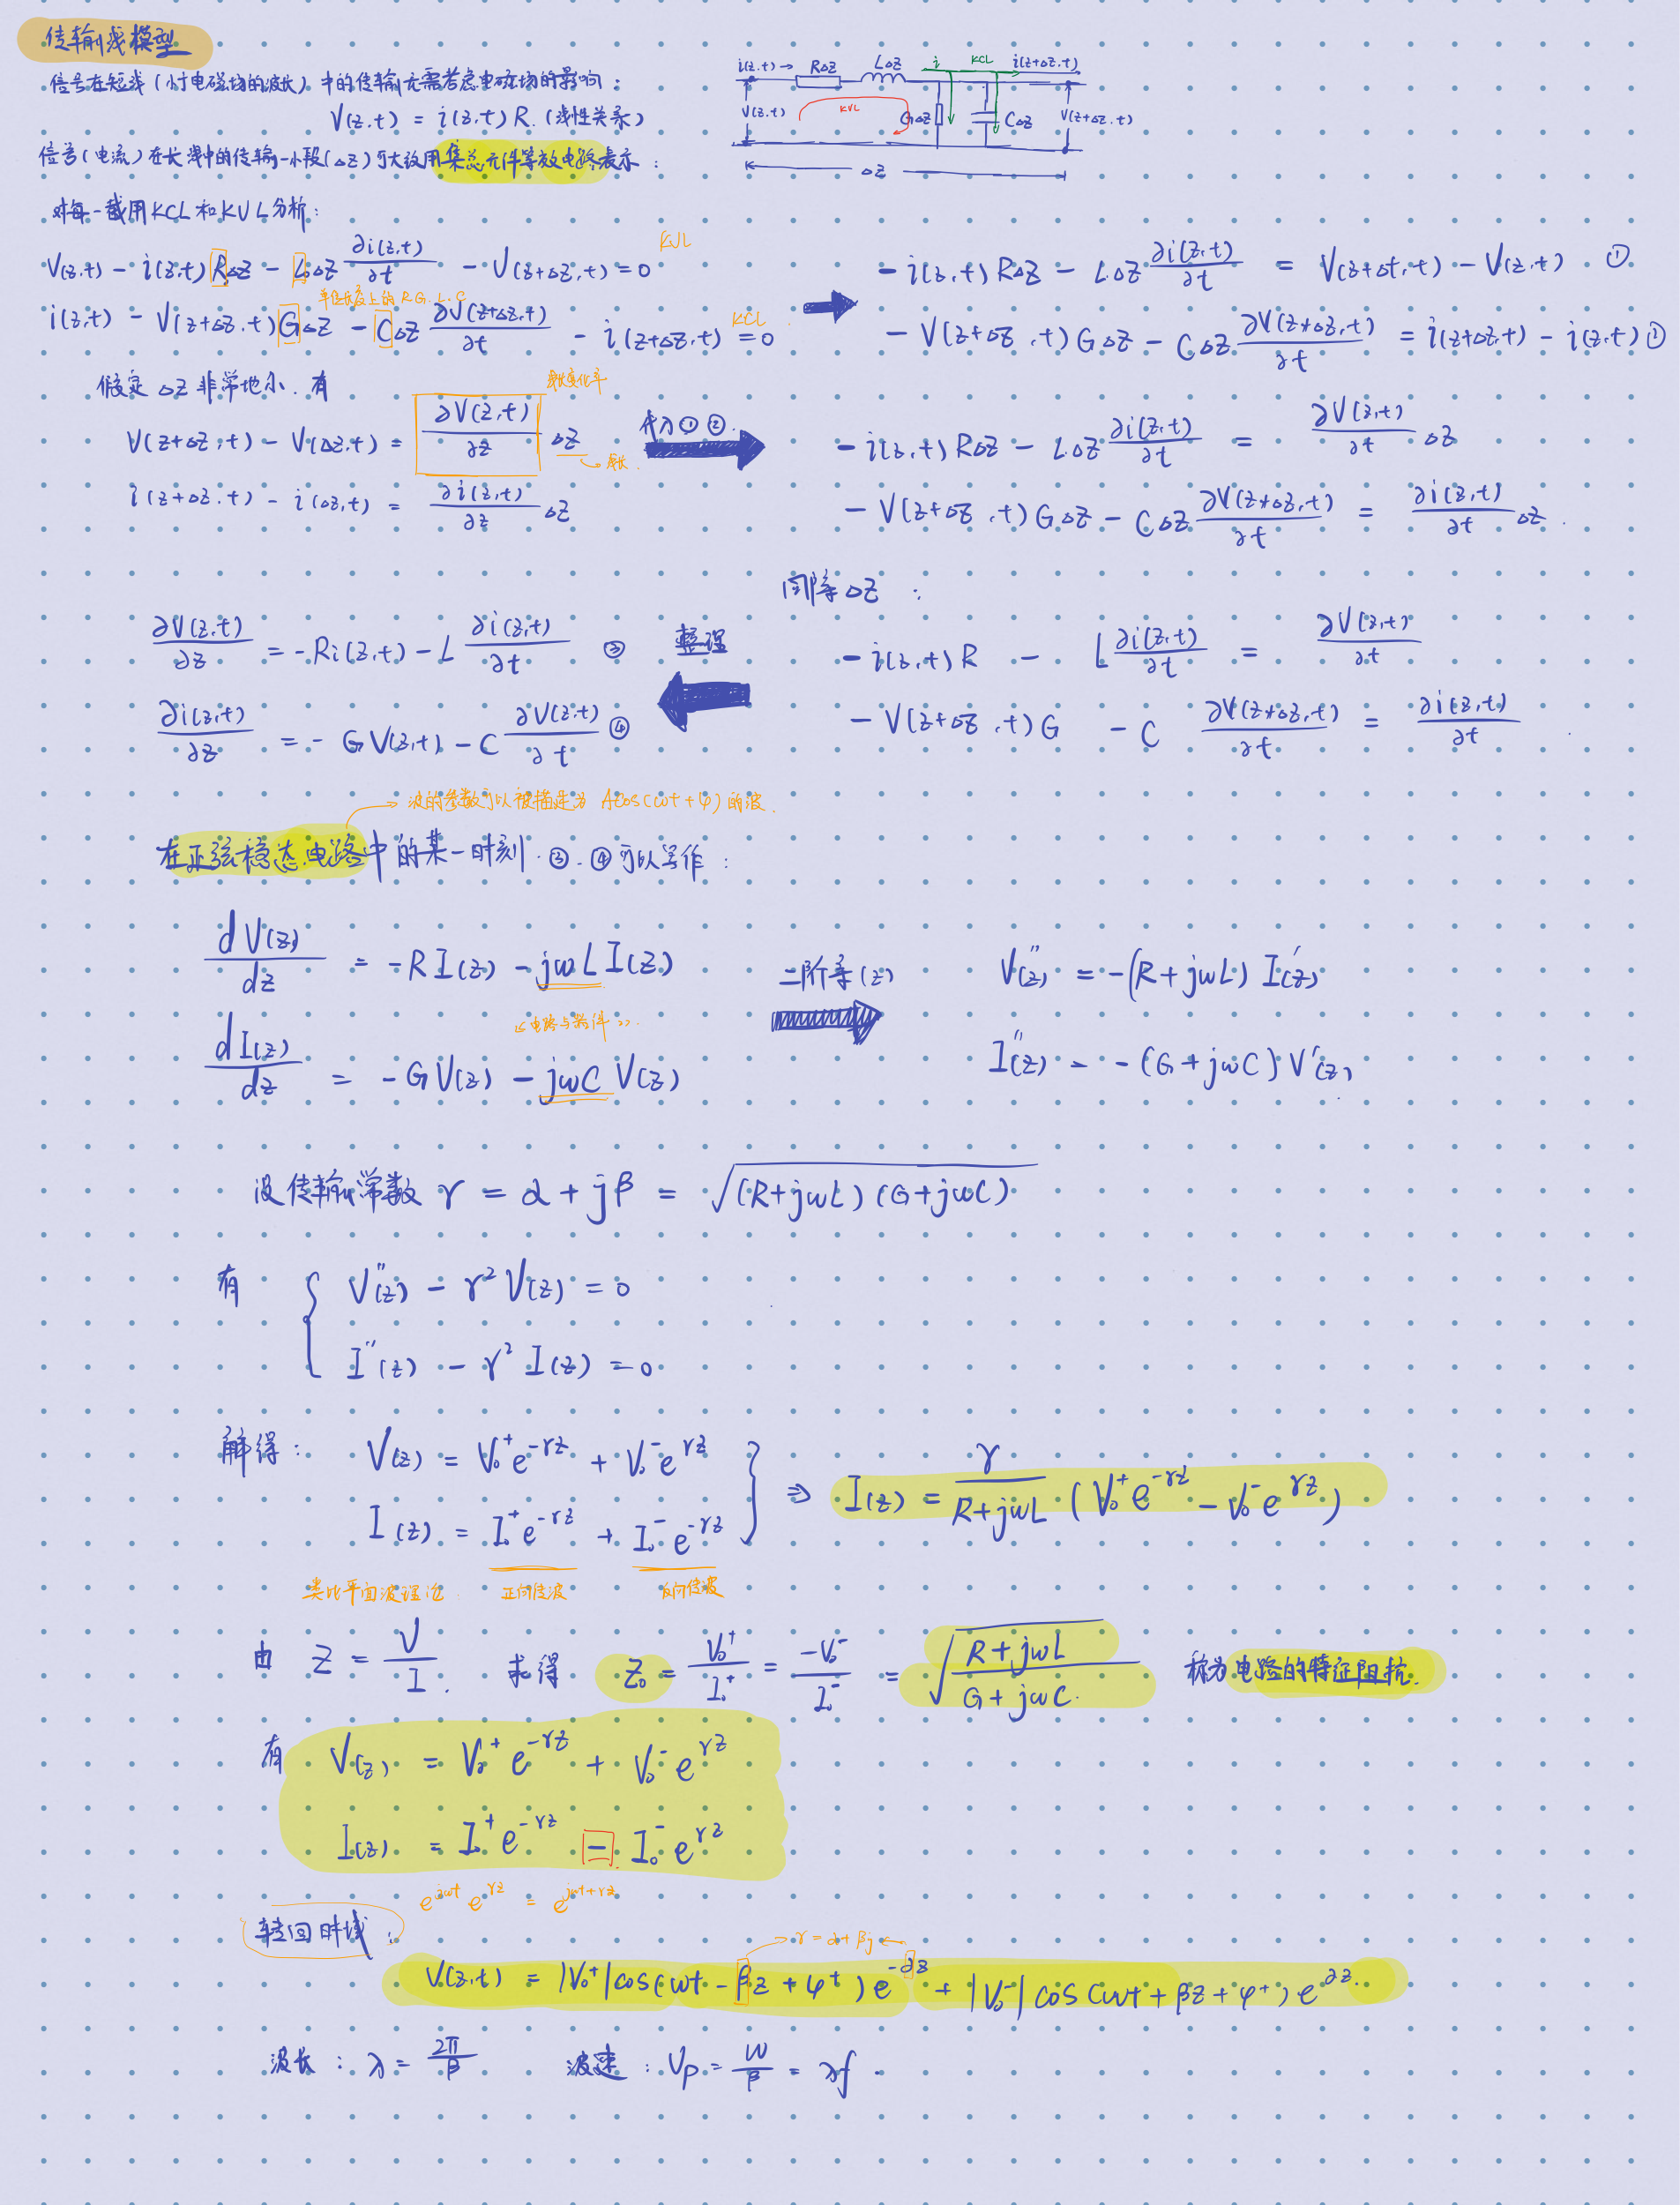 传输线模型
信号在短线(小于电磁场的波长)中的传输无需考虑电磁场的影响:
V(z,t) = i(z,t) R. (线性关系)
信号(电流)在长线中的传输一小段(Δz)可大致用集总元件等效电路表示:
i(z.t) → RΔZ LΔZ i KCL i(z+ΔZ.t)
V(z.t) KVL GΔZ CΔZ V(z+ΔZ.t)
ΔZ
对每一截用KCL和KVL分析:
V(z,t) - i(z,t)RΔZ - LΔZ ∂i(z,t)/∂t - V(z+ΔZ,t) = 0 KVL
单位长度上的 R.G.L.C
i(z,t) - V(z+ΔZ,t)GΔZ - CΔZ ∂V(z+ΔZ,t)/∂t - i(z+ΔZ,t) = 0 KCL
-i(z,t)RΔZ - LΔZ ∂i(z,t)/∂t = V(z+Δt,t) - V(z,t) ①
-V(z+ΔZ,t)GΔZ - CΔZ ∂V(z+ΔZ,t)/∂t = i(z+ΔZ,t) - i(z,t) ①
假定 ΔZ 非常地小.有
V(z+ΔZ,t) - V(ΔZ,t) = ∂V(z,t)/∂z ΔZ
i(z+ΔZ.t) - i(ΔZ,t) = ∂i(z,t)/∂z ΔZ
代入①②.
-i(z,t)RΔZ - LΔZ ∂i(z,t)/∂t = ∂V(z,t)/∂t ΔZ
-V(z+ΔZ,t)GΔZ - CΔZ ∂V(z+ΔZ,t)/∂t = ∂i(z,t)/∂t ΔZ.
同除ΔZ:
-i(z,t)R - L ∂i(z,t)/∂t = ∂V(z,t)/∂t
-V(z+ΔZ,t)G - C ∂V(z+ΔZ,t)/∂t = ∂i(z,t)/∂t
整理
∂V(z,t)/∂z = -Ri(z,t) - L ∂i(z,t)/∂t ③
∂i(z,t)/∂z = -GV(z,t) - C ∂V(z,t)/∂t ④
→ 波的参数可以被描述为 Acos(ωt+φ) 的波.
在正弦稳态电路中的某一时刻.③.④可以写作:
dV(z)/dz = -RI(z) - jωLI(z)
《电路与器件》.
dI(z)/dz = -GV(z) - jωCV(z)
二阶导(z)
V''(z) = -(R+jωL) I'(z)
I''(z) = -(G+jωC) V'(z)
设传输常数 γ = α + jβ = √(R+jωL)(G+jωC)
有 { V''(z) - γ²V(z) = 0
I''(z) - γ²I(z) = 0
解得: V(z) = V₀⁺e^-γz + V₀⁻e^γz
I(z) = I₀⁺e^-γz + I₀⁻e^-γz
⇒ I(z) = γ/(R+jωL) (V₀⁺e^-γz - V₀⁻e^γz)
类比平面波理论. 正向传波 反向传波
由 Z = V/I. 求得 Z₀ = V₀⁺/I₀⁺ = -V₀⁻/I₀⁻ = √(R+jωL)/(G+jωC) 称为电路的特征阻抗.
有 V(z) = V₀⁺e^-γz + V₀⁻e^γz
I(z) = I₀⁺e^-γz - I₀⁻e^γz
e^jωt e^γz = e^jωt+γz
转回时域:
→ γ = α+βj ←
V(z,t) = |V₀⁺|cos(ωt - βz + φ⁺)e^-αz + |V₀⁻|cos(ωt + βz + φ⁺)e^αz.
波长: λ = 2π/β 波速: Vp = ω/β = λf.